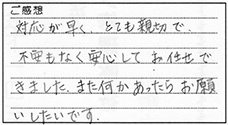 ご感想
対応が早く、とても親切で、
不安もなく安心してお任せで
きました。また何かあったらお願
いしたいです。